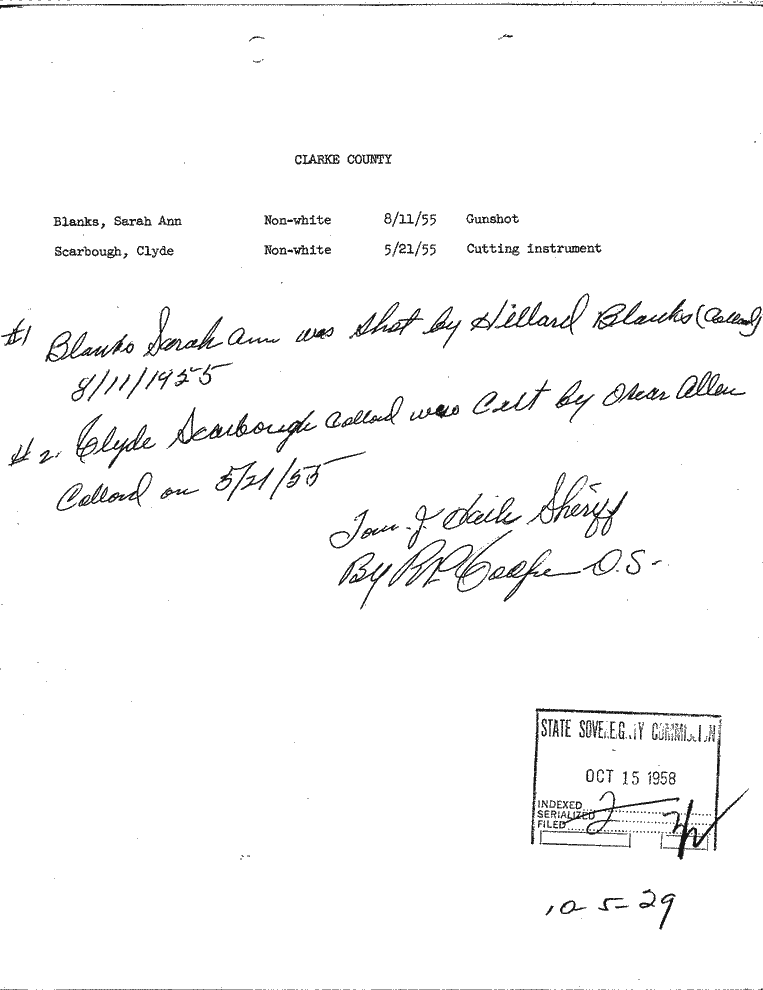 CLARKE COUNTY
Blanks, Sarah Ann Non-white 8/11/55 Gunshot
Scarbough, Clyde Non-white 5/21/55 Cutting instrument
#1 Blanks Sarah Ann was shot by Hillard Blanks (Collord)
8/11/1955
#2. Clyde Scarbough Collord was Cut by Oscar Allen
Collord on 5/21/55
Tom. J. Haile Sheriff
By D.S.
STATE SOVE
OCT 15 1958
INDEXED 2
SERIALIZED
FILED
10-5-29